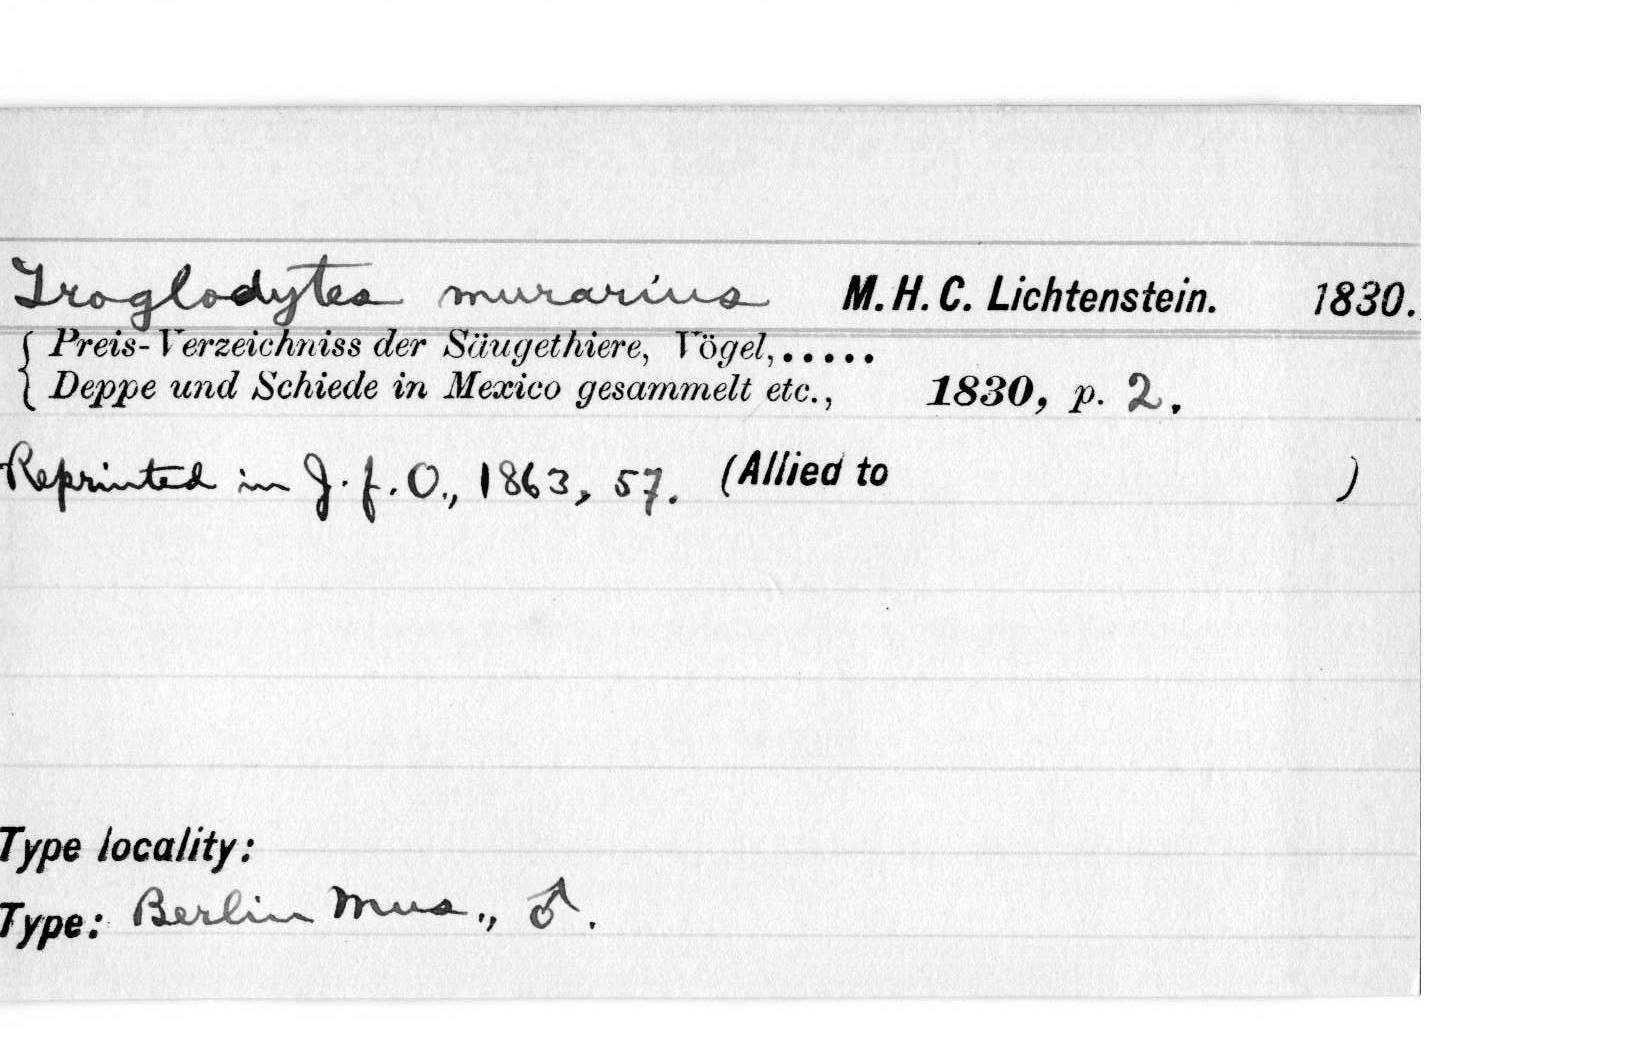 Troglodytes murarius M. H. C. Lichtenstein. 1830.
{ Preis-Verzeichniss der Säugethiere, Vögel,.....
{ Deppe und Schiede in Mexico gesammelt etc., 1830, p. 2.
Reprinted in J. f. O., 1863, 57. (Allied to )
Type locality:
Type: Berlin Mus., ♂.